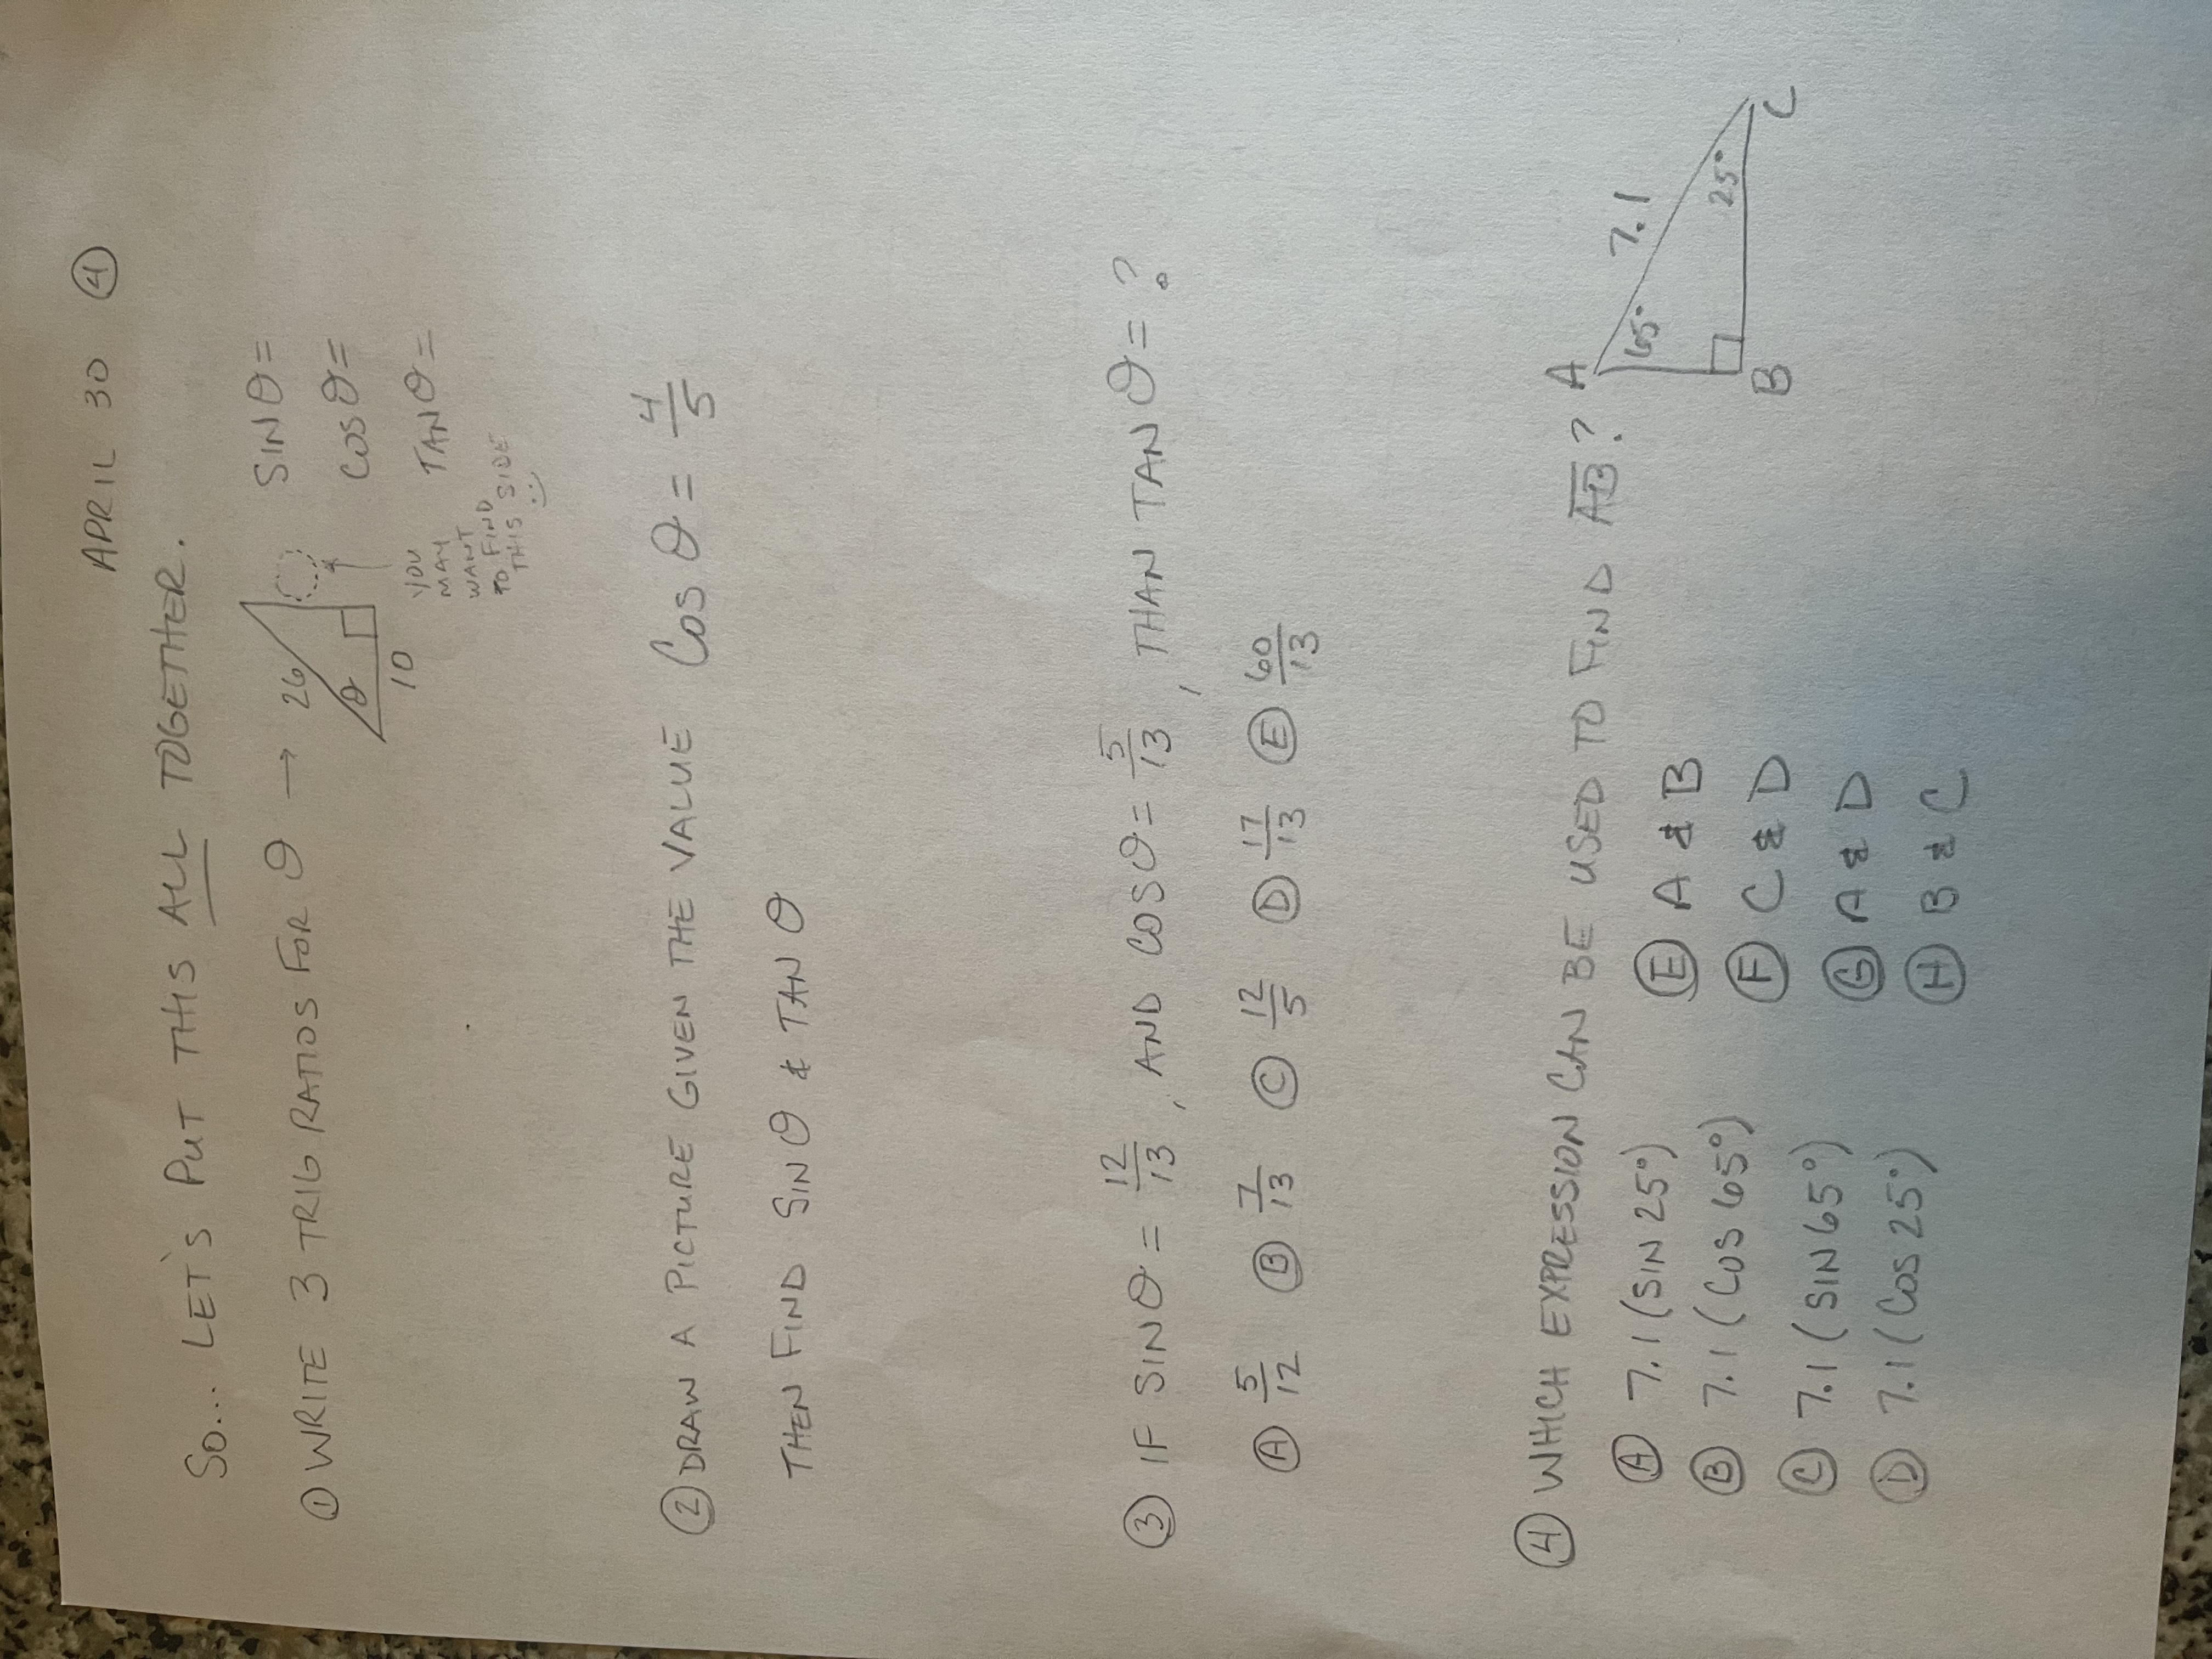 APRIL 30 ④
SO... LET'S PUT THIS ALL TOGETHER.
① WRITE 3 TRIG RATIOS FOR θ →
26
θ
10
SIN θ =
COS θ =
TAN θ =
YOU
MAY
WANT
TO FIND
THIS SIDE
② DRAW A PICTURE GIVEN THE VALUE COS θ = 4/5
THEN FIND SIN θ & TAN θ
③ IF SIN θ = 12/13, AND COS θ = 5/13, THAN TAN θ = ?
Ⓐ 5/12 Ⓑ 7/13 Ⓒ 12/5 Ⓓ 17/13 Ⓔ 60/13
④ WHICH EXPRESSION CAN BE USED TO FIND A̅B̅?
Ⓐ 7.1 (SIN 25°) Ⓔ A & B
Ⓑ 7.1 (COS 65°) Ⓕ C & D
Ⓒ 7.1 (SIN 65°) Ⓖ A & D
Ⓓ 7.1 (COS 25°) Ⓗ B & C
A
65°
7.1
25°
B
C